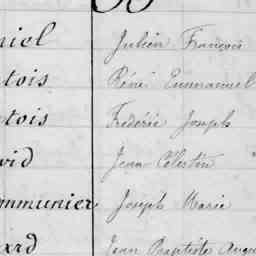 niel Julien François
tois Réné Emmanuel
tois Frédéric Joseph
vid Jean Célestin
mmunier Joseph Marie
xrd Jean Baptiste Augu